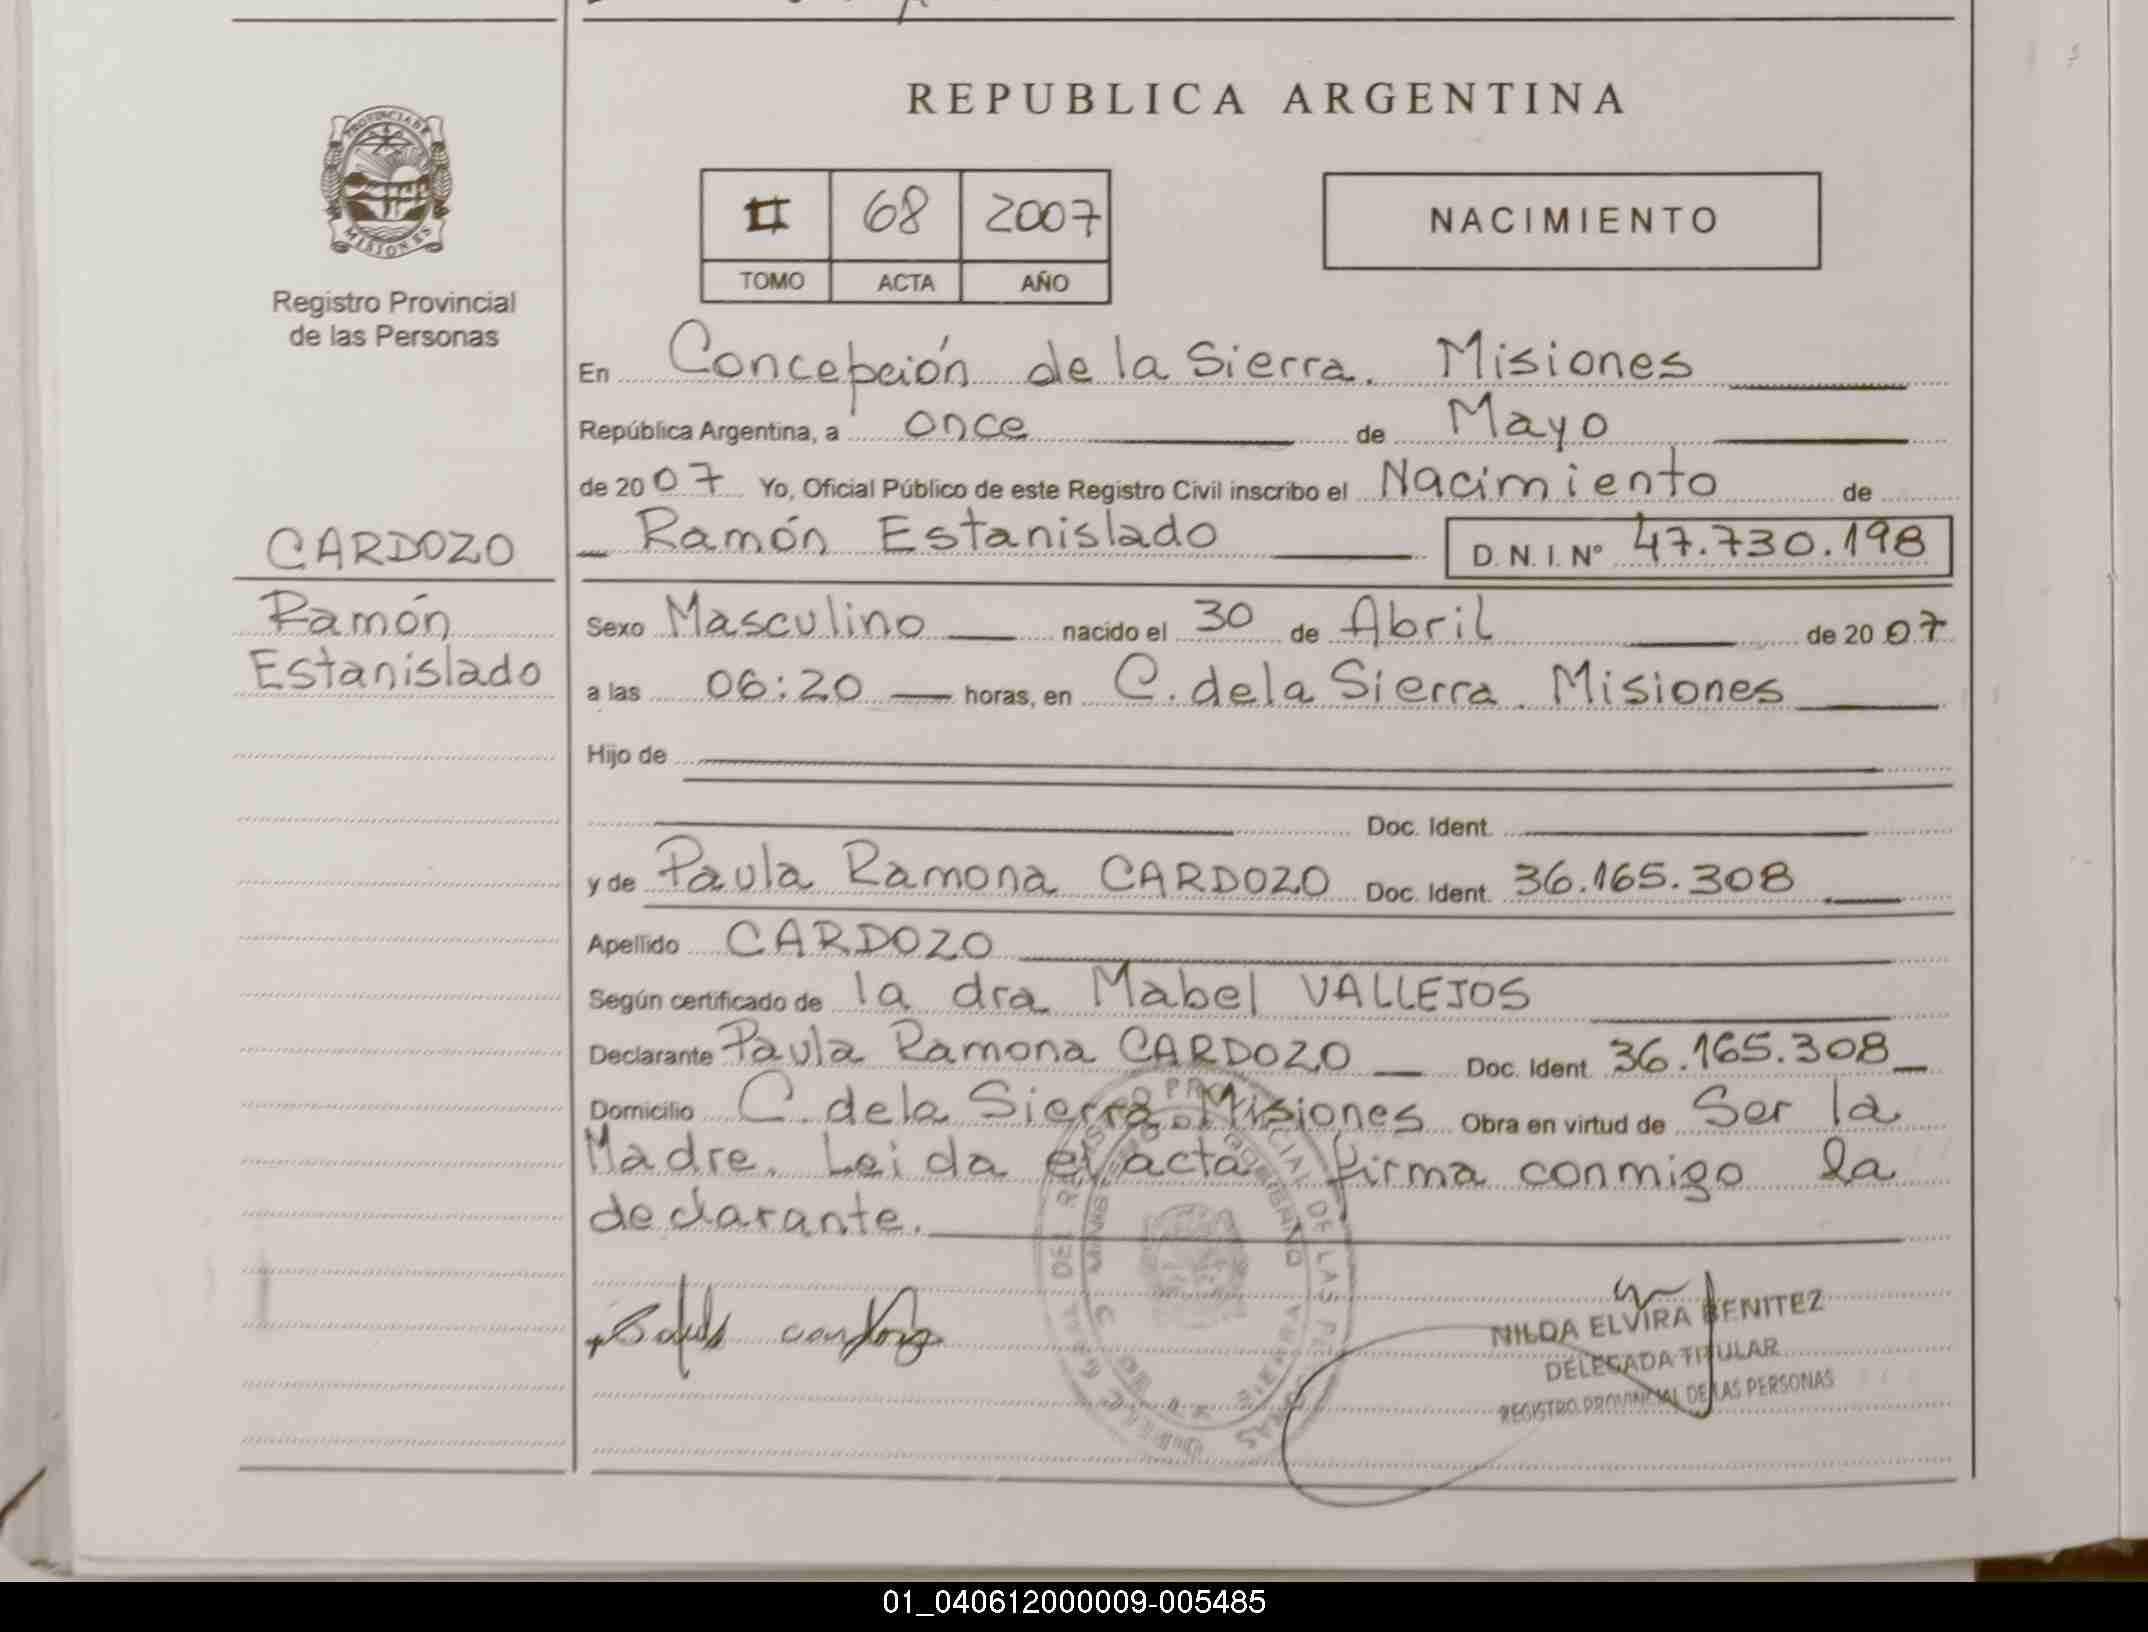 REPUBLICA ARGENTINA
PROVINCIA DE
MISIONES
Registro Provincial
de las Personas
II 68 2007
TOMO ACTA AÑO
NACIMIENTO
En Concepción de la Sierra. Misiones
República Argentina, a once de Mayo
de 2007 Yo, Oficial Público de este Registro Civil inscribo el Nacimiento de
Ramón Estanislado D.N.I. Nº 47.730.198
CARDOZO
Ramón
Estanislado
Sexo Masculino nacido el 30 de Abril de 2007
a las 06:20 horas, en C. de la Sierra. Misiones
Hijo de
Doc. Ident.
y de Paula Ramona CARDOZO Doc. Ident. 36.165.308
Apellido CARDOZO
Según certificado de la dra Mabel VALLEJOS
Declarante Paula Ramona CARDOZO Doc. Ident. 36.165.308
Domicilio C. de la Sierra Misiones Obra en virtud de Ser la
Madre. Leida el acta firma conmigo la
declarante.
NILDA ELVIRA BENITEZ
DELEGADA TITULAR
REGISTRO PROVINCIAL DE LAS PERSONAS
01_040612000009-005485